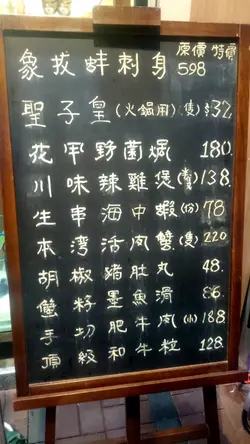 象拔蚌刺身 原價 特價
598
聖子皇(火鍋用)(隻)$32
花甲野菌焗 180.
川味辣雞煲 138.
生串海中蝦(份) 78
本湾活肉蟹(隻) 220
胡椒豬肚丸 48.
蟹籽墨魚滑 86.
手切肥牛肉(小) 188
頂級和牛粒 128.